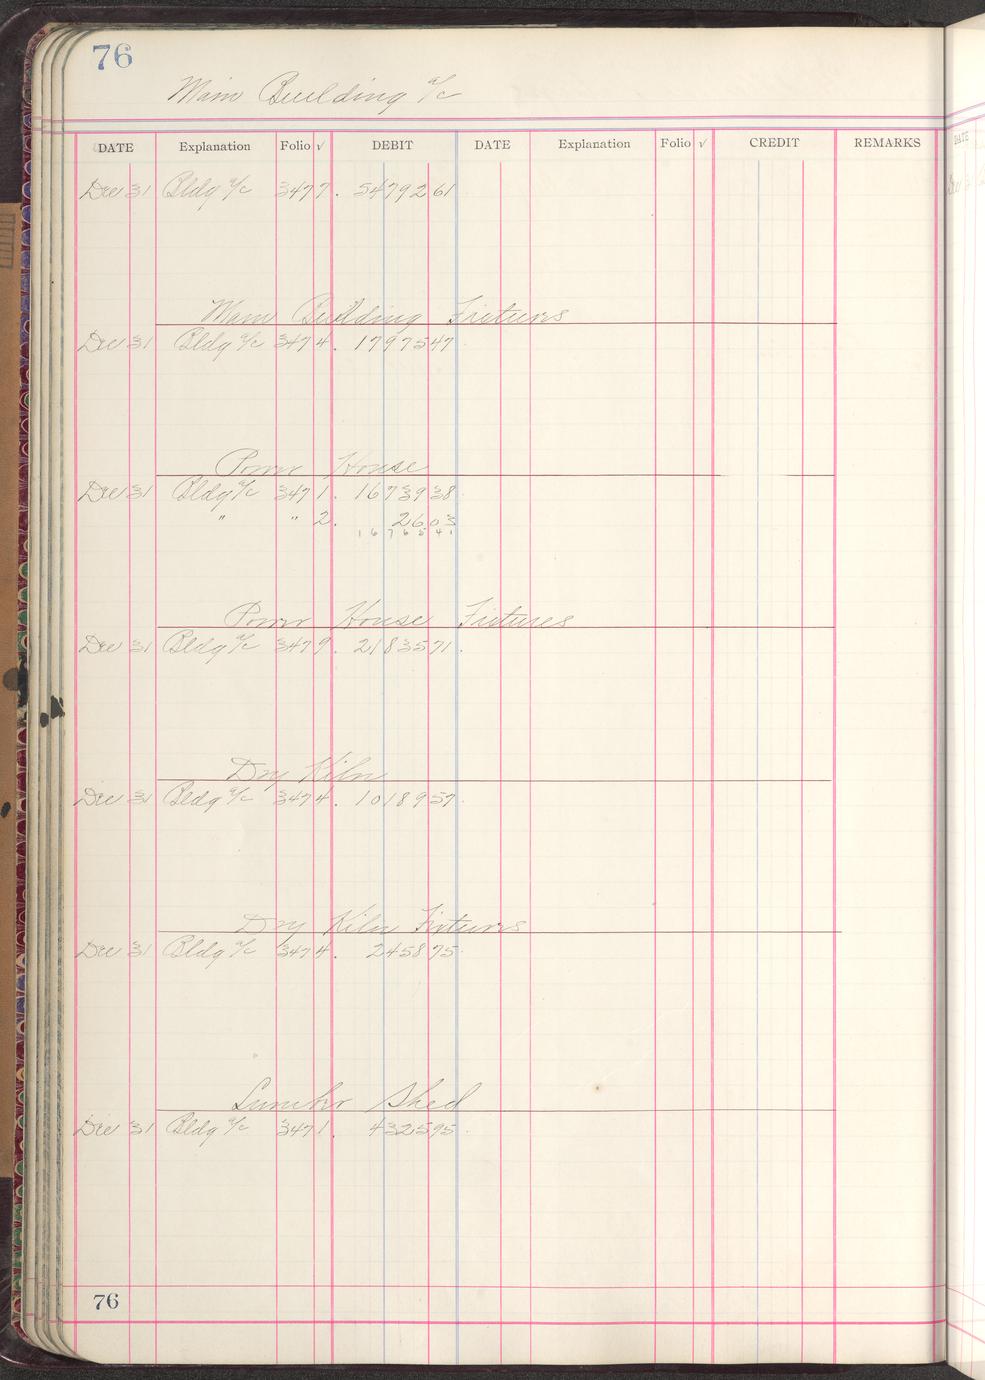 76
Main Building a/c
DATE Explanation Folio √ DEBIT DATE Explanation Folio √ CREDIT REMARKS
Dec 31 Bldg a/c 347 7. 54792 61
Main Building Fixtures
Dec 31 Bldg a/c 347 4. 17975 47
Power House
Dec 31 Bldg a/c 347 1. 16739 38
" " 2. 26 03
16765 41
Power House Fixtures
Dec 31 Bldg a/c 347 9. 21835 71
Dry Kiln
Dec 31 Bldg a/c 347 4. 10189 57
Dry Kiln Fixtures
Dec 31 Bldg a/c 347 4. 2458 75
Lumber Shed
Dec 31 Bldg a/c 347 1. 4325 95
76
DATE